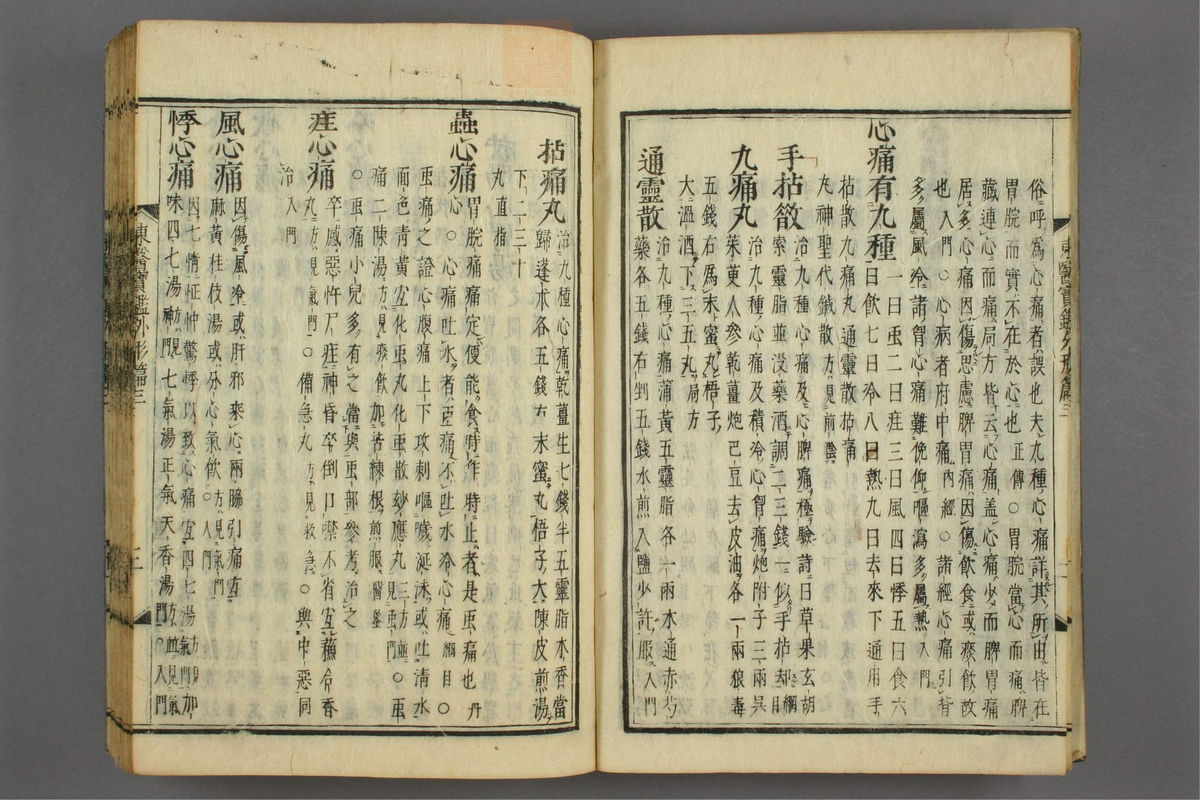 俗呼爲心痛者誤也夫九種心痛詳其所由皆在
胃脘而實不在於心也正傳○胃脘當心而痛脾
藏連心而痛局方皆云心痛盖心痛少而脾胃痛
居多心痛因傷思慮脾胃痛因傷飮食或痰飮故
也入門○心病者府中痛內經○諸經心痛引背
多屬風冷諸胃心痛難俛仰嘔瀉多屬熱入門
心痛有九種
一曰虫二曰疰三曰風四曰悸五曰食六
曰飮七曰冷八曰熱九曰去來下通用手
拈散九痛丸通靈散拈痛
丸神聖代鍼散方見前陰
手拈散
治九種心痛及心脾痛極驗詩曰草果玄胡
索靈脂並沒藥酒調二三錢一似手拈却綱目
九痛丸
治九種心痛及積冷心胷痛炮附子三兩吳
茱萸人參乾薑炮巴豆去皮油各一兩狼毒
五錢右爲末蜜丸梧子
大溫酒下三五丸局方
通靈散
治九種心痛蒲黃五靈脂各一兩木通赤芍
藥各五錢右剉五錢水煎入鹽少許服入門
拈痛丸
治九種心痛乾薑生七錢半五靈脂木香當
歸蓬朮各五錢右末蜜丸梧子大陳皮煎湯
下二三十
丸直指
蟲心痛
胃脘痛定便能食時作時止者是虫痛也丹
心○心痛吐水者虫痛不吐水冷心痛綱目○
虫痛之證心腹痛上下攻刺嘔噦涎沫或吐清水
面色青黃宜化虫丸化虫散紗應丸三方並見虫門○虫
痛二陳湯方見痰飮加苦練根煎服醫鑒
○虫痛小兒多有之當與虫部參考治之
疰心痛
卒感惡忤尸疰神昏卒倒口噤不省宜蘇合香
丸方見氣門○備急丸方見救急○與中惡同
治入門
風心痛
因傷風冷或肝邪乘心兩脇引痛宜
麻黃桂枝湯或分心氣飮方見氣門○入門
悸心痛
因七情怔忡驚悸以致心痛宜四七湯方見氣門加
味四七湯方見神門七氣湯正氣天香湯方並見氣門○入門
東醫寶鑑外形篇三
東醫寶鑑外形篇三